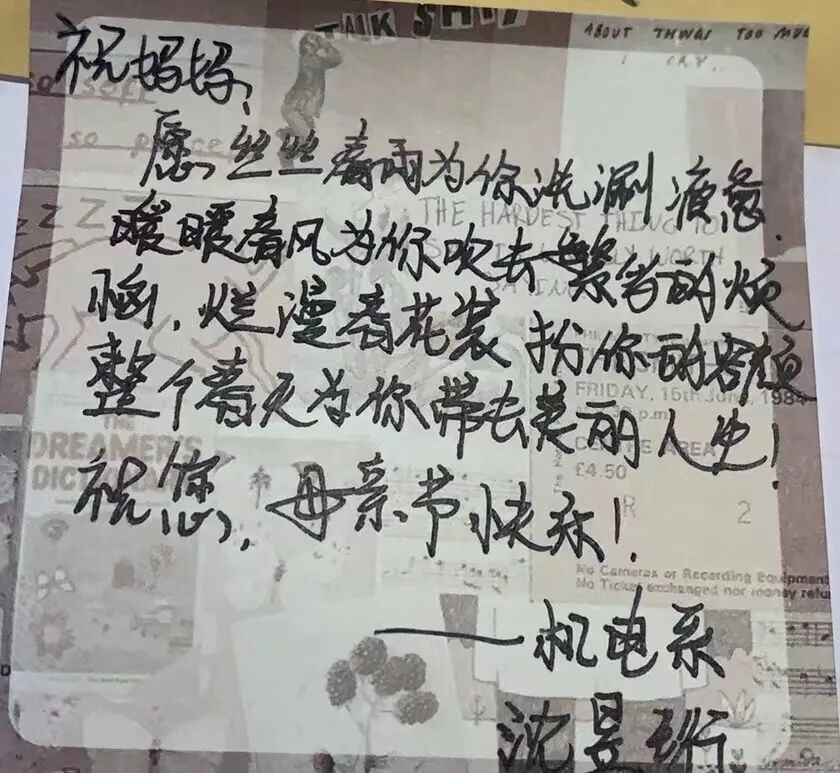 TALK SHIT
ABOUT THINGS TOO MUC
I CRY..
祝妈妈：
so soft
愿丝丝春雨为你洗涮疲惫.
暖暖春风为你吹去繁多的烦
THE HARDEST THING TO
恼，烂漫春花装扮你的容颜
整个春天为你带去美丽人生！
FRIDAY, 15th June, 1984
p.m.
THE
DREAMER'S
AREA
£4.50
祝您，母亲节快乐！
R 2
No Cameras or Recording Equipment
No Ticket exchanged nor money refu
——机电系
沈昱珩